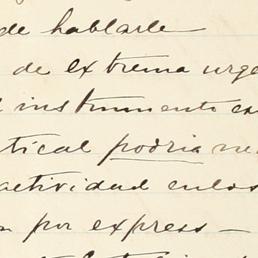 de hablarle
de extrema urge
instrumento es
tical podria ve
actividad enlos
n por express —